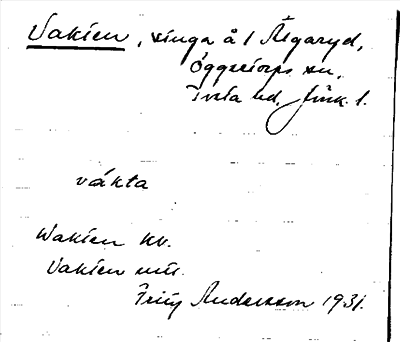 Vakien, ringa å 1 Älgaryd,
Öggestorps sn,
Tveta hd, Jönk. l.
väkta
Wakien kv.
Vakien
Fritz Andersson 1931.